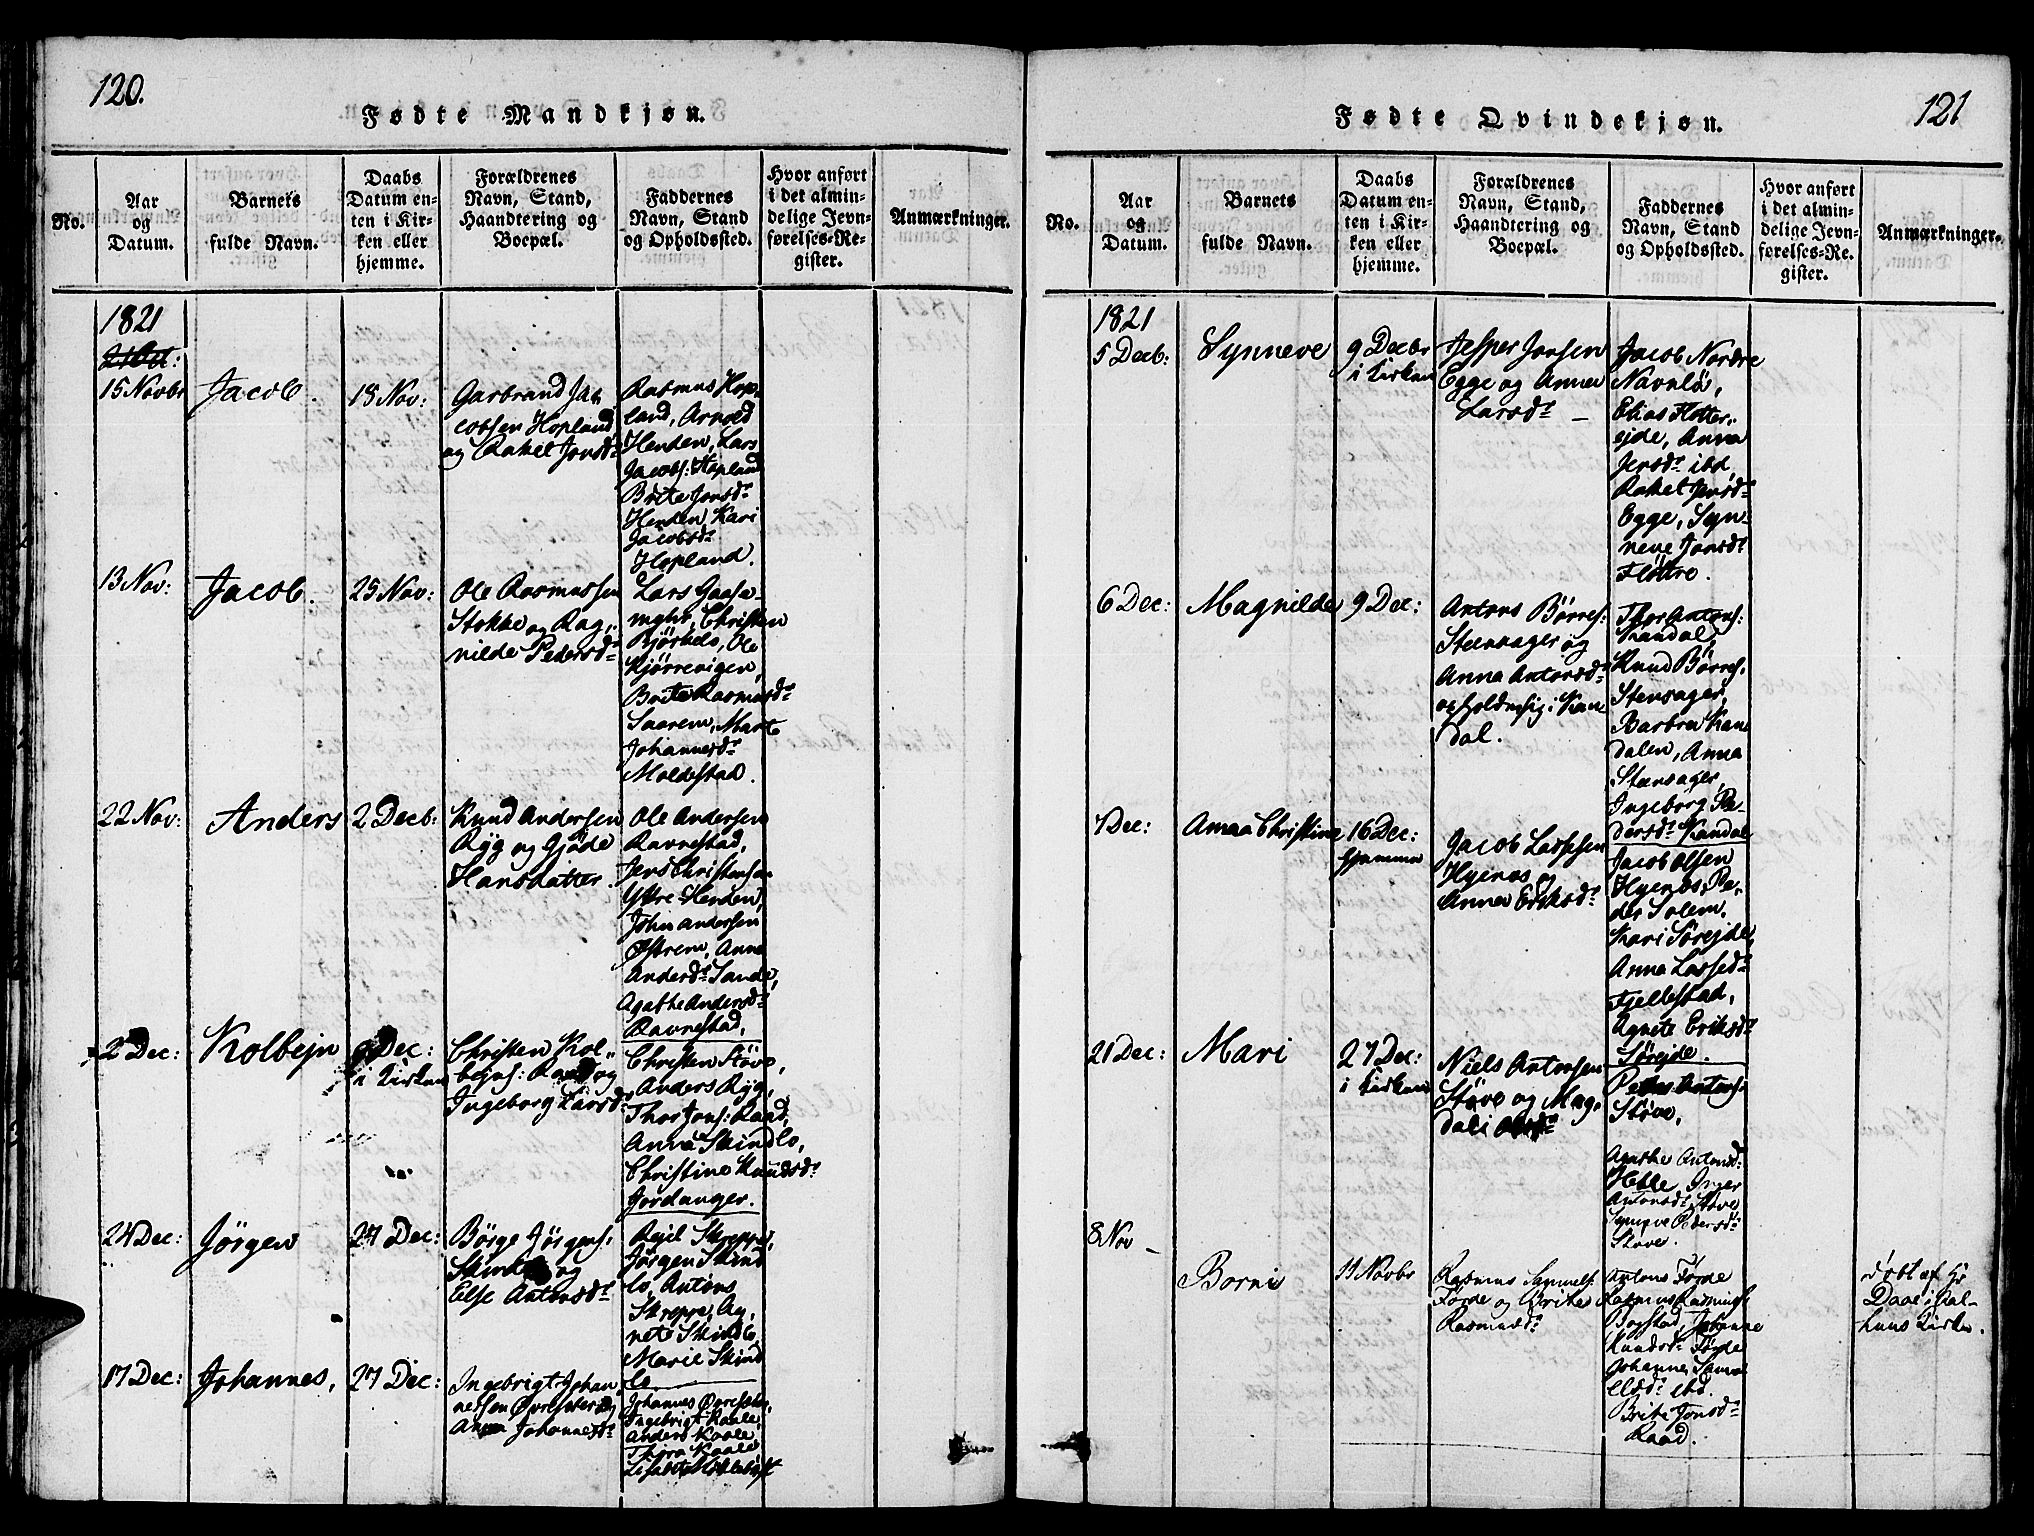 120.
Fødte Mandkjøn.
No.
Aar
og
Datum.
Barnets
fulde Navn.
Daabs
Datum en-
ten i Kir-
ken eller
hjemme.
Forældrenes
Navn, Stand,
Haandtering og
Boepæl.
Faddernes
Navn, Stand
og Opholdssted.
Hvor anført
i det almin-
delige Jevn-
førelses-Re-
gister.
Anmærkninger.
1821
21 Oct:
15 Novbr
Jacob.
18 Nov:
Garbrand Ja-
cobsen Hopland
og Rakel Jonsdr
Rasmus Hop-
land, Arnold
Henden, Lars
Jacobs: Hopland
Brite Jonsdr
Henden, Kari
Jacobsdr
Hopland.
13 Nov:
Jacob.
25 Nov:
Ole Rasmussen
Stokke og Rag-
nilde Pedersdr
Lars Gaase-
Christen
Bjørkelo, Ole
Brite Rasmusdr
Saarem, Marte
Johannesdr
Moldestad.
22 Nov:
Anders
2 Decb:
Knud Andersen
Ryg og Gjøde
Hansdatter.
Ole Andersen
Ravnestad,
Jens Christensen
Ytre Henden,
John Andersen
Østrem, Anne
Andersdr Sande,
Agathe Andersdr
Ravnestad,
2 Dec:
Kolbejn
Dec:
i Kirken
Christen Kol-
bejns: Raad og
Ingeborg Larsdr
Christen Støve,
Anders Ryg,
Thor Jons: Raad,
Anna Skindlo,
Christine Knudsdr
Jordanger.
24 Dec:
Jørgen
27 Dec:
Børge Jørgens:
og
Else Antonsdr
Rejel Skreppe,
Jørgen Skind
lo, Antons
Skreppe, Ag-
nete Skindlo,
Marie Skind
lo
17 Dec:
Johannes,
27 Dec:
Ingebrigt Johan-
nessen
Anna Johannesdr
Johannes
Ingebrigt Kaale,
Anders Kaale
Thora Kaale
121
Fødte Qvindekjøn.
No.
Aar
og
Datum.
Barnets
fulde Navn.
Daabs
Datum en-
ten i Kir-
ken eller
hjemme.
Forældrenes
Navn, Stand,
Haandtering og
Boepæl.
Faddernes
Navn, Stand
og Opholdssted.
Hvor anført
i det almin-
delige Jevn-
førelses-Re-
gister.
Anmærkninger.
1821
5 Decb:
Synneve
9 Decbr
i Kirken
Jesper Jonsen
Egge og Anna
Larsdr
Jacob Nordre
Navnlø,
Elias Flotter-
ejde, Anna
Jensdr ibd,
Rakel Jensdr
Egge, Syn-
neve Jonsdr
Fløtre.
6 Dec:
Magnilde
9 Dec:
Antons Børres:
Steensager og
Anna Antonsdr
opholdersig i Kan
dal.
Thor Antons:
Kandal,
Knud Børres:
Stensager,
Barbra Kan
dalen, Anna
Stensager,
Ingeborg Pe-
dersdr Kandal
7 Dec:
Anna Christine
16 Dec:
hjemme
Jacob Lassesen
Hyenes og
Anna Eriksdr
Jacob Olsen
Hyenes, Pe-
der Solem,
Kari Sørejde,
Anna Lassedr
Fjellestad,
Agnete Eriksdr
Sørejde.
21 Dec:
Mari
27 Dec:
i Kirken
Niels Antonsen
Støve og Mag-
dali
Antons:
Støve,
Agathe Antonsdr
Hetle, Inger
Antonsdr Støve
Synneve Pedersdr
Støve.
8 Nov
Borni
11 Novbr
Rasmus Samuels:
Førde og Brite
Rasmusdr
Antons Førde
Rasmus Rasmus:
Bogstad, Johanne
Knudsdr Førde
Johanne Samu
elsdr ibd.
Brite Jonsdr
Raad.
døbt af Hr
Daae i Dal-
huus Kirke.